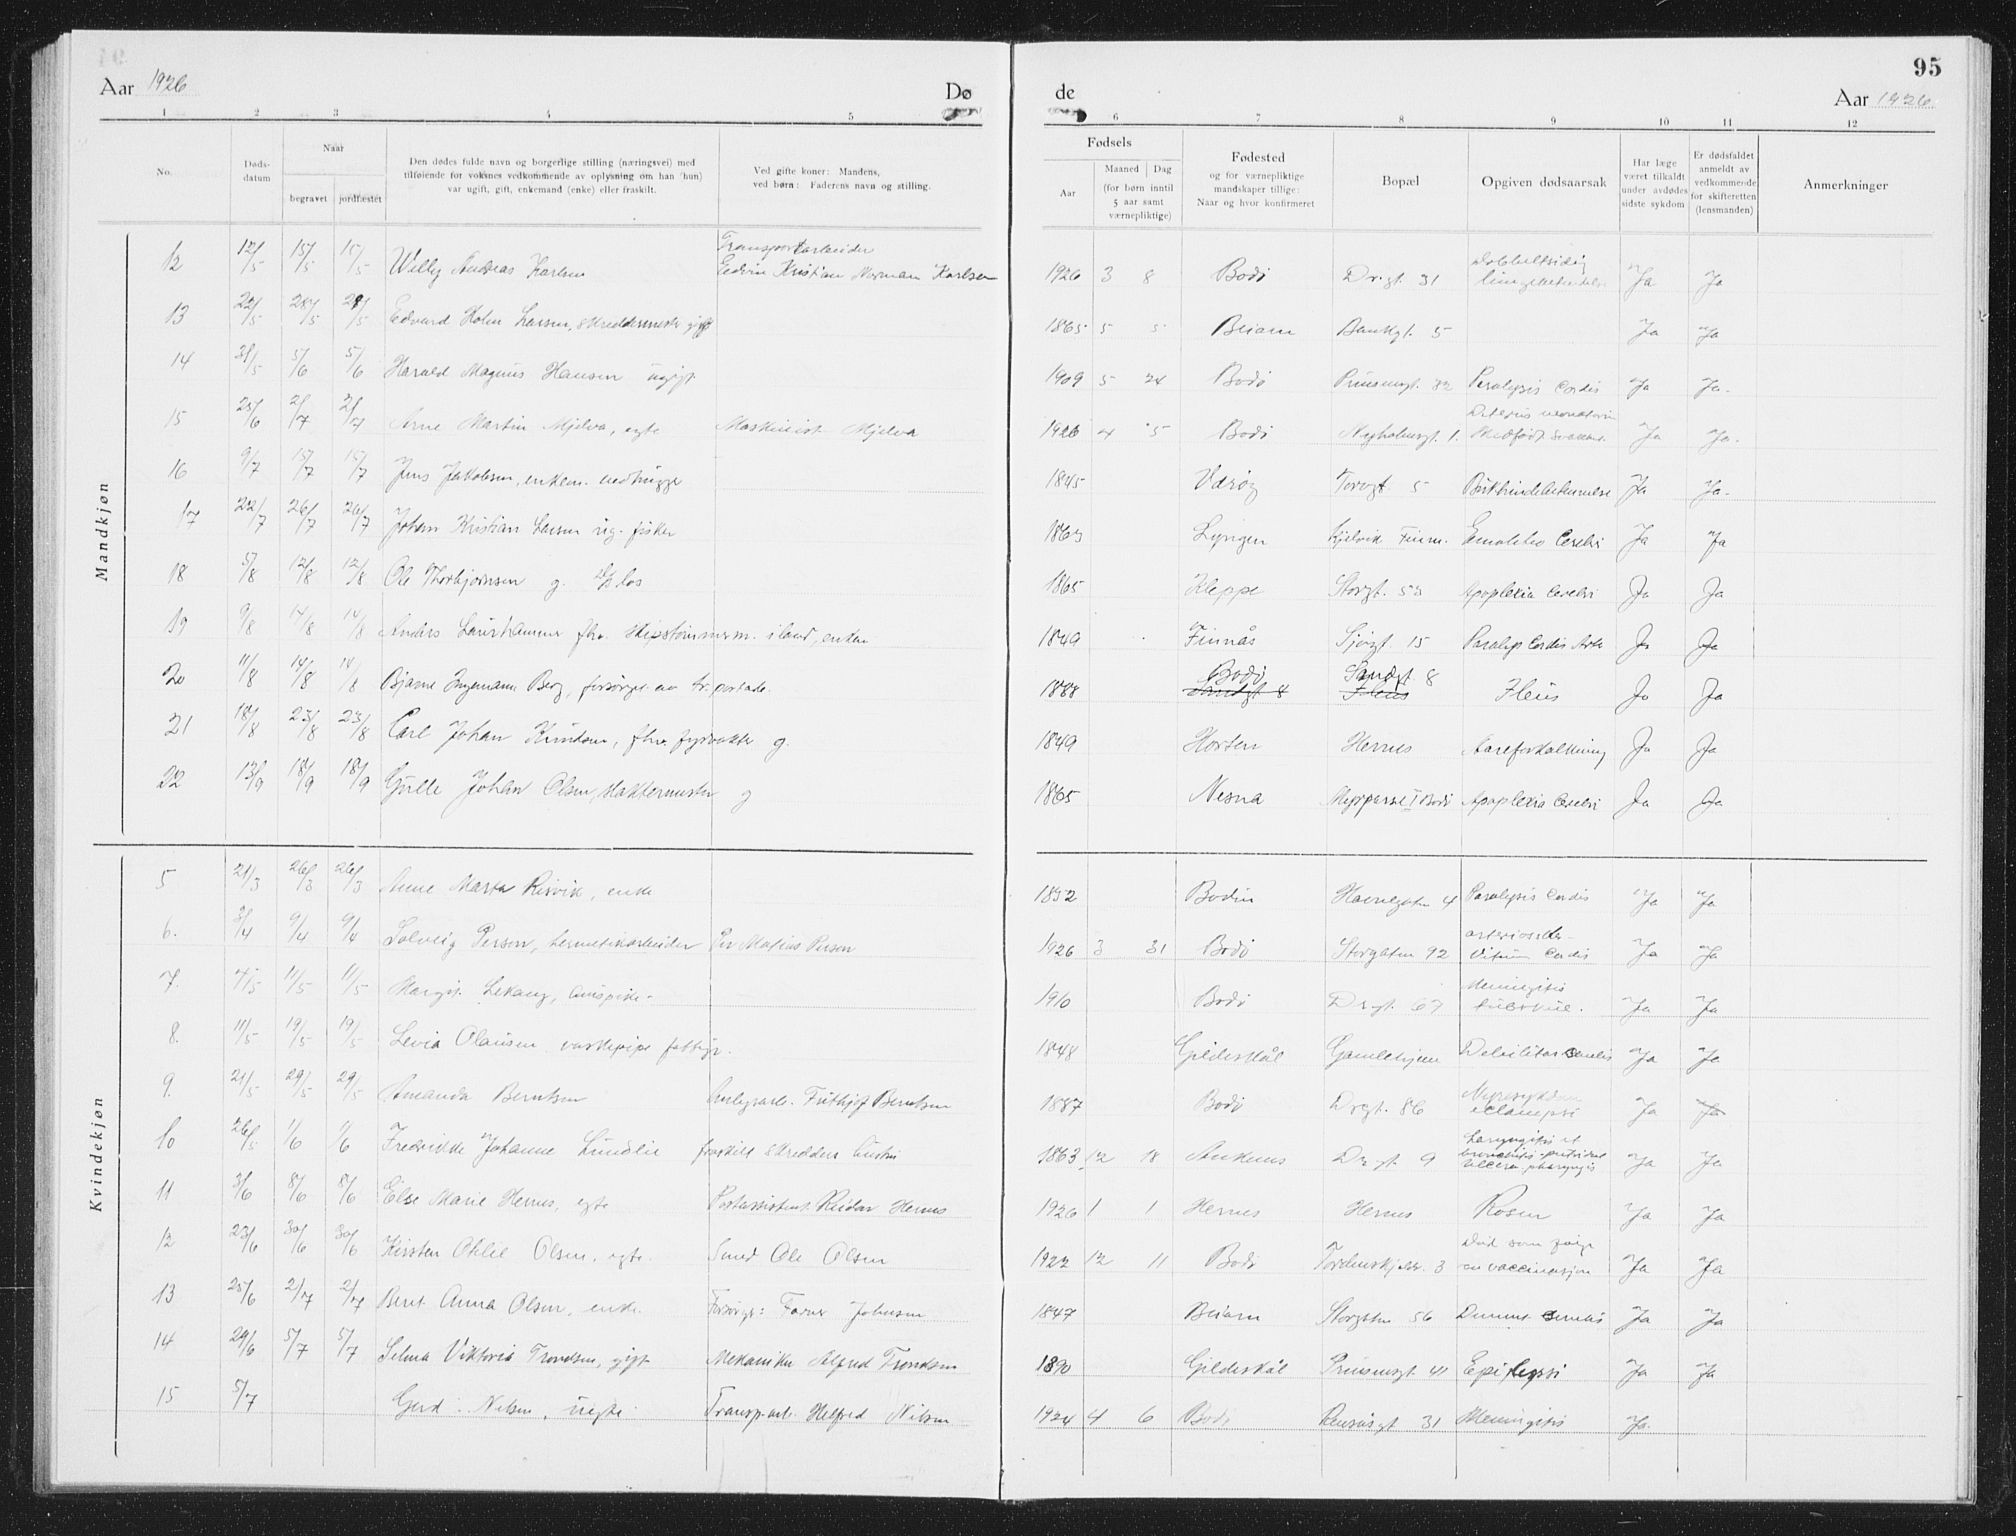 95
Aar 1926 Døde Aar 1926
1 2 3 4 5 6 7 8 9 10 11 12
No.
Døds-
datum
Naar
begravet jordfæstet
Den dødes fulde navn og borgerlige stilling (næringsvei) med
tilføiende for voksnes vedkommende av oplysning om han (hun)
var ugift, gift, enkemand (enke) eller fraskilt.
Ved gifte koner: Mandens,
ved børn: Faderens navn og stilling.
Fødsels
Aar
Maaned Dag
(for børn inntil
5 aar samt
værnepliktige)
Fødested
og for værnepliktige
mandskaper tillige:
Naar og hvor konfirmeret
Bopæl
Opgiven dødsaarsak
Har læge
været tilkaldt
under avdødes
sidste sykdom
Er dødsfaldet
anmeldt av
vedkommende
for skifteretten
(lensmanden)
Anmerkninger
Mandkjøn
12 12/5 15/5 15/5 Willy Andreas Karlsen Transportarbeider Edvin Kristian Norman Karlsen 1926 3 8 Bodø Drgt. 31 Dobbeltsidig Ja Ja
13 22/5 28/5 28/5 Edvard Holm Larsen, skreddermester gift 1865 5 5 Beiarn Bankgt. 5 Ja Ja
14 31/5 5/6 5/6 Harald Magnus Hansen ugift 1909 5 24 Bodø Prinsensgt. 82 Paralysis Cordis Ja Ja.
15 25/6 2/7 2/7 Arne Martin Mjelva, egte Maskinist Mjelva 1926 4 5 Bodø Nyholmsgt. 1. Icterus neonatorum Medfødt svakhet Ja Ja.
16 9/7 15/7 15/7 Jens Jakobsen, enkem. vedhugger 1845 Værøy Torvgt. 5 Bukhindebetennelse Ja Ja.
17 22/7 26/7 26/7 Johan Kristian Larsen ug. fisker 1863 Lyngen Kjelvik Finm. Cerebri Ja Ja
18 5/8 12/8 12/8 Ole Thorbjørnsen g. los 1865 Kleppe Storgt. 53 Apoplexia Cerebri Ja Ja
19 9/8 14/8 14/8 Anders fhv. skipstømmerm. enkem 1849 Finnås Sjøgt. 15 Paralys Cordis Ja Ja
20 11/8 14/8 14/8 Bjarne Ingemann Berg, forsørget av 1888 Bodø Sandgt 8 Sandgt 8 Ileus Ileus Ja Ja
21 18/8 23/8 23/8 Carl Johan Knudsen, fhv. fyrvokter g. 1849 Horten Hernes Aareforkalkning Ja Ja
22 13/9 18/9 18/9 Gulle Johan Olsen, Malermester g 1865 Nesna Bodø Apoplexia Cerebri Ja Ja
Kvindekjøn
5 21/3 26/3 26/3 Anne Marta Risvik, enke 1852 Bodin Havnegaten 4 Paralysis Cordis Ja Ja
6. 3/4 9/4 9/4 Solveig Person, hermetikarbeider Per Matias Person 1926 3 31 Bodø Storgaten 92 Vitium Cordis Ja Ja
7. 4/5 11/5 11/5 Margit Lekang, 1910 Bodø Drgt. 67 Meningitis tuberkul. Ja Ja
8. 11/5 19/5 19/5 Levia Olausen vaskepike fattigv. 1848 Gildeskål Gamlehjem Debilitas senilis Ja Ja
9. 21/5 29/5 29/5 Amanda Berntsen Anlegsarb. Fritjof Berntsen 1887 Bodø Drgt. 86 Nyresykdom eclampsi Ja Ja
10 26/5 1/6 1/6 Fredrikke Johanne Lundlie fraskilt skredders hustru 1863 12 18 Ankenes Drgt 9 Laryngitis et bronchitis putrida Ja Ja
11 3/6 8/6 8/6 Else Marie Hernes, egte Postassistent Reidar Hernes 1926 1 1 Hernes Hernes Rosen Ja Ja
12 23/6 30/6 30/6 Kirsten Otilie Olsen, egte. Smed Ole Olsen 1922 12 11 Bodø Tordenskjolds. 3 Død som følge av vaccinasjon Ja Ja
13 25/6 2/7 2/7 Berit Anna Olsen, enke. Forsørget: Johnsen 1847 Beiarn Storgaten 56 Ja Ja
14 29/6 5/7 5/7 Selma Viktoria Trondsen, gift Mekaniker Alfred Trondsen 1890 Gildeskål Prinsensgt. 41 Epilepsi Ja Ja
15 5/7 Gerd Nilsen, uegte Transp.arb. Helfred Nilsen 1924 4 6 Bodø Rensåsgt 31 Meningitis Ja.